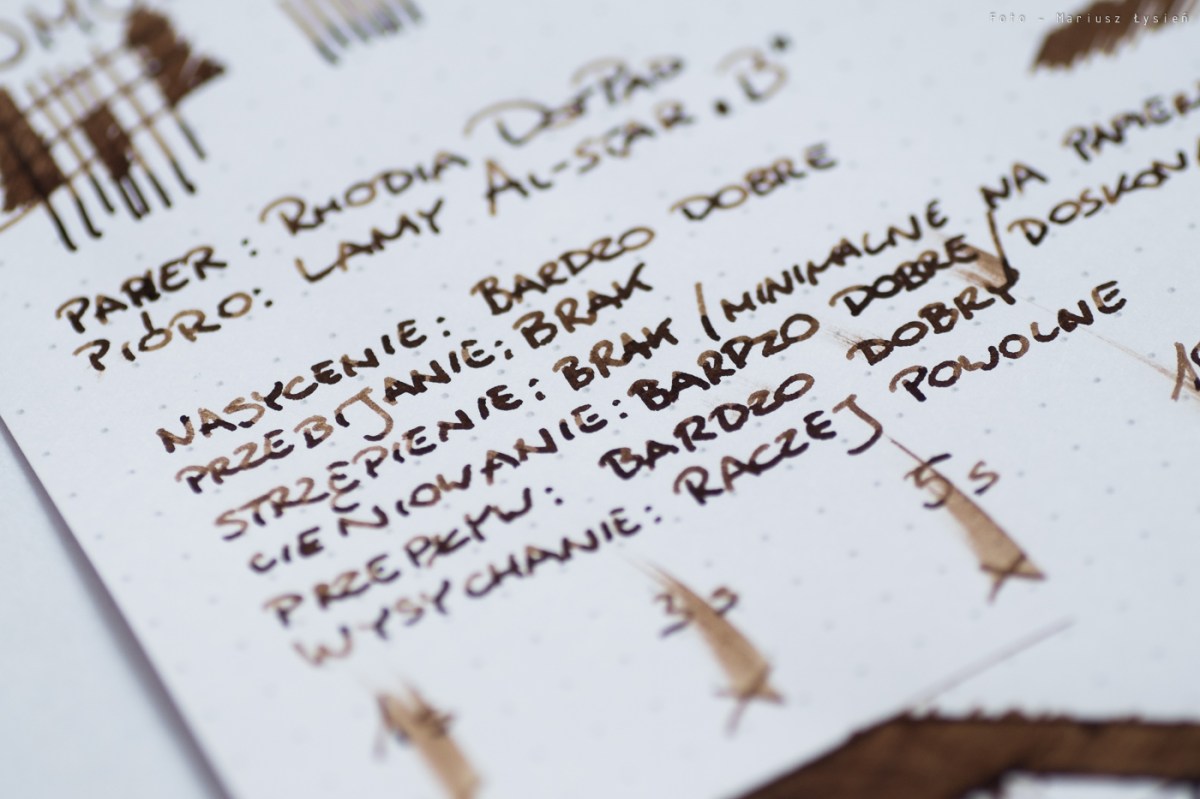 Foto - Mariusz Łysień
PAPIER: RHODIA DOTPAD
PIÓRO: LAMY AL-STAR "B"
NASYCENIE: BARDZO DOBRE
PRZEBIJANIE: BRAK
STRZĘPIENIE: BRAK / MINIMALNE NA PAPIER
CIENIOWANIE: BARDZO DOBRE / DOSKONA
PRZEPŁYW: BARDZO DOBRY
WYSYCHANIE: RACZEJ POWOLNE
5 s
3 s